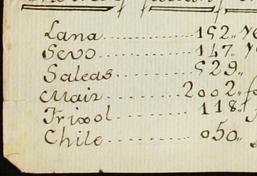 Lana 152,,
Sevo 147,,
Saleas 529,,
Mair 2002,,
Frixol 118,,
Chile 050,,